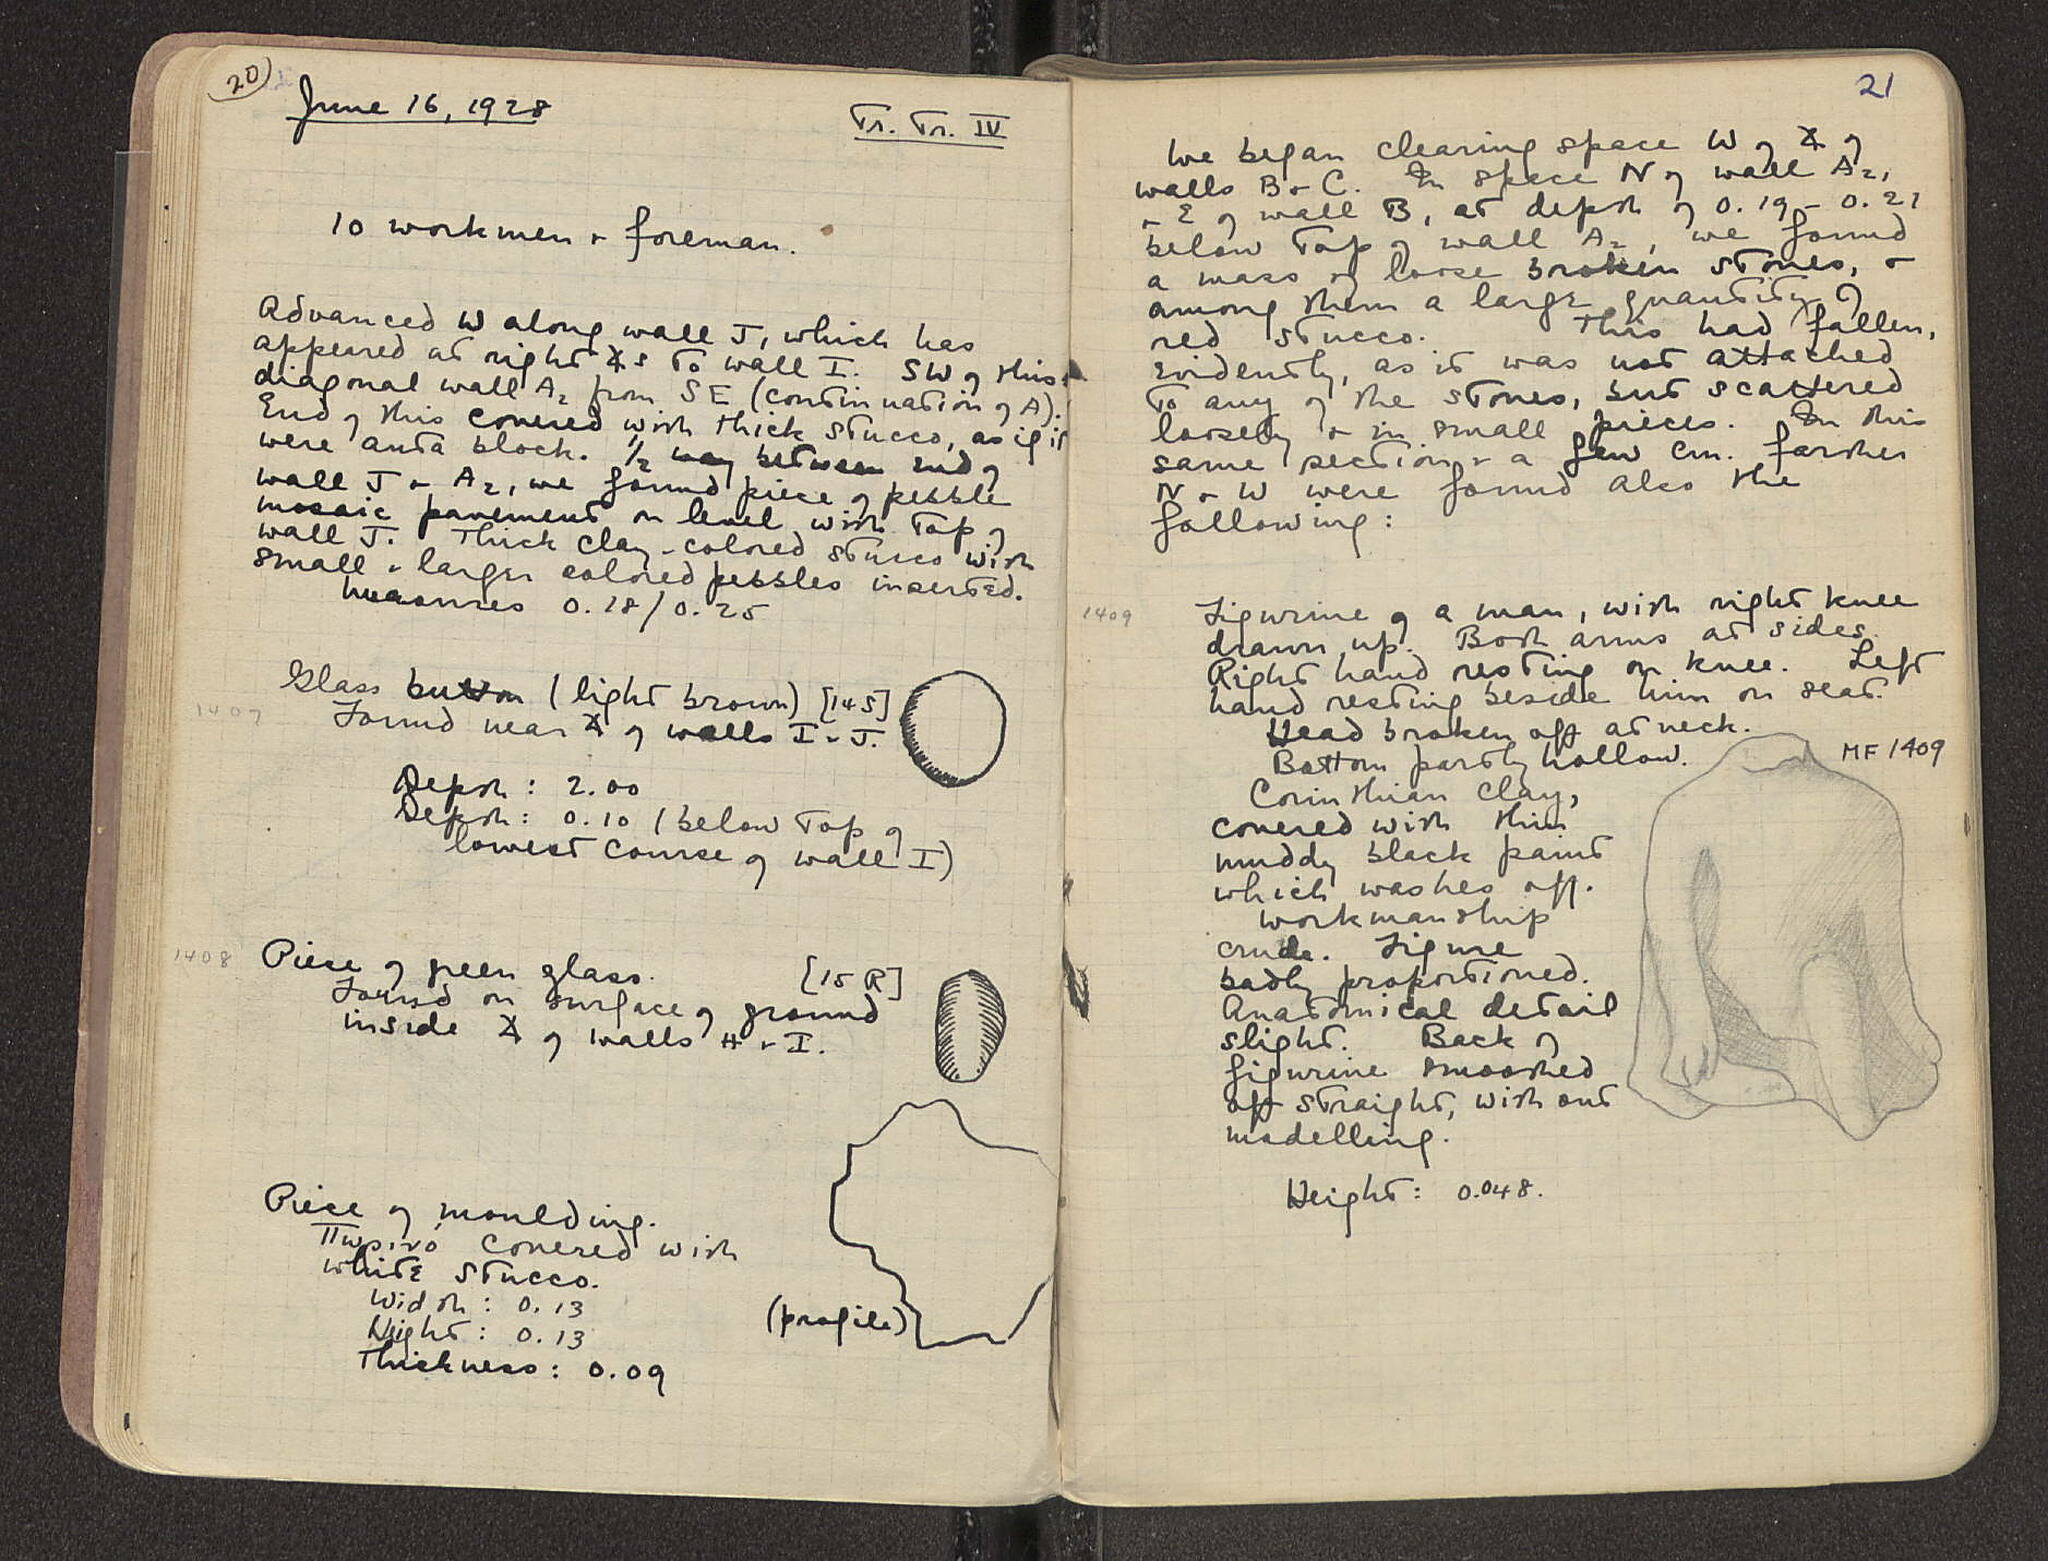 20
June 16, 1928
Tr. Tr. IV
10 workmen + foreman.
Advanced W along wall J, which has
appeared at right ∡s to wall I. SW of this
diagonal wall A₂ from SE (continuation of A).
End of this covered with thick stucco, as if it
were anta block. ½ way between end of
wall J + A₂, we found piece of pebble
mosaic pavement on level with top of
wall J. Thick clay-colored stucco with
small + larger colored pebbles inserted.
measures 0.28/0.25
1407
Glass button (light brown) [14S]
Found near ∡ of walls I + J.
Depth: 2.00
Depth: 0.10 (below top of
lowest course of wall I)
1408
Piece of green glass. [15 R]
Found on surface of ground
inside ∡ of walls H + I.
Piece of moulding.
Πωρινό covered with
white stucco.
Width: 0.13
Height: 0.13
Thickness: 0.09
(profile)
21
We began clearing space W of ∡ of
walls B + C. In space N of wall A₂,
+ E of wall B, at depth of 0.19 - 0.21
below top of wall A₂, we found
a mass of loose broken stones, +
among them a large quantity of
red stucco. This had fallen,
evidently, as it was not attached
to any of the stones, but scattered
loosely + in small pieces. In this
same section + a few cm. farther
N + W were found also the
following:
1409
Figurine of a man, with right knee
drawn up. Both arms at sides.
Right hand resting on knee. Left
hand resting beside him on seat.
Head broken off at neck.
Bottom partly hollow.
MF 1409
Corinthian clay,
covered with thin
muddy black paint
which washes off.
Workmanship
crude. Figure
badly proportioned.
Anatomical detail
slight. Back of
figurine smoothed
off straight, without
modelling.
Height: 0.048.